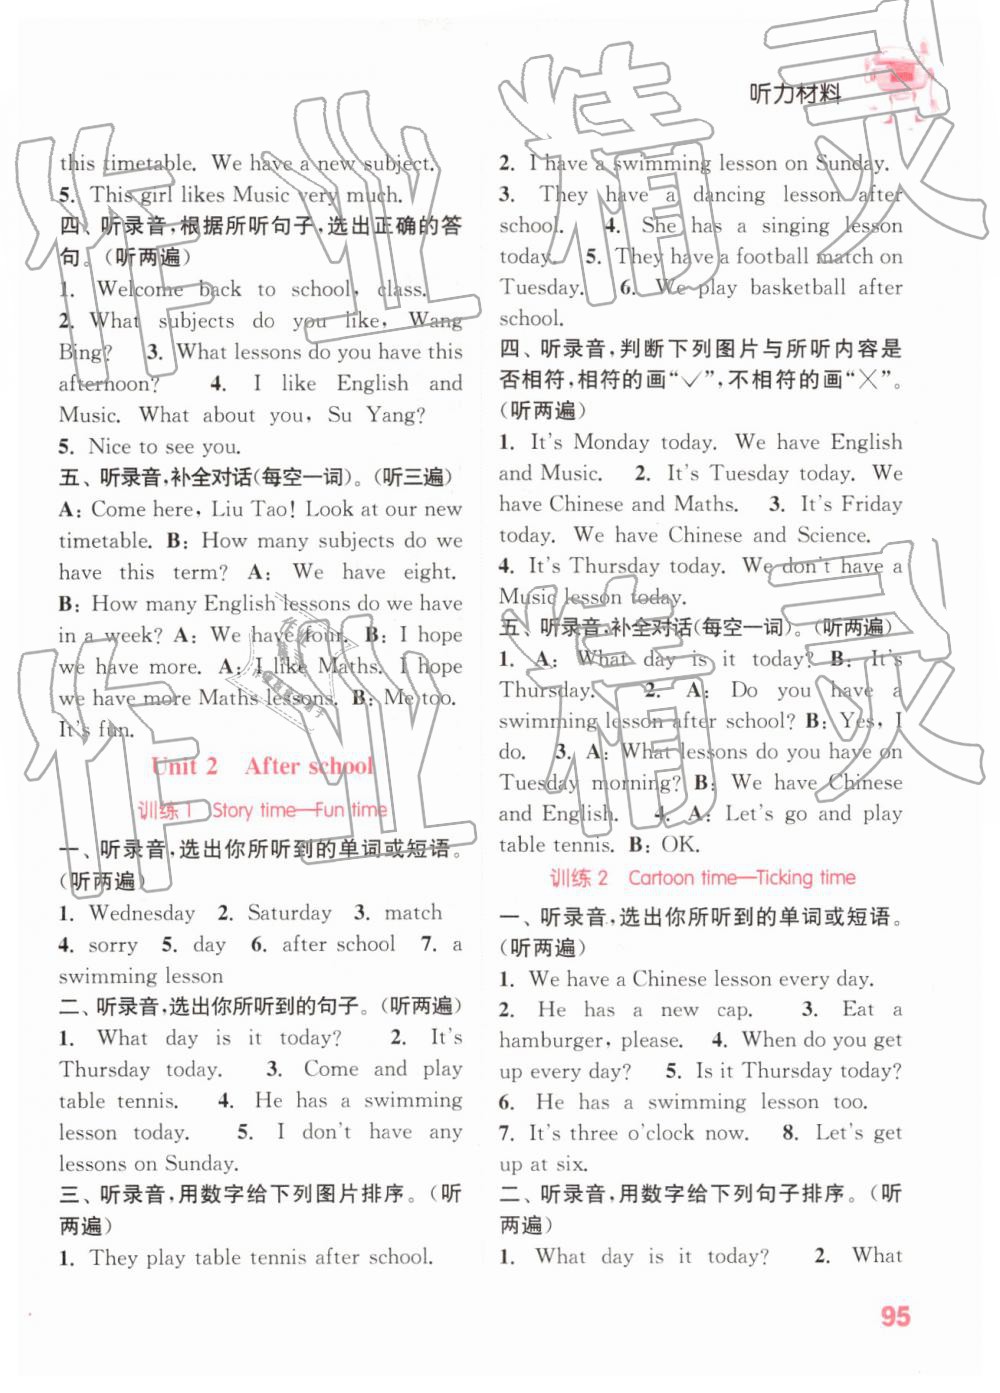 听力材料
this timetable. We have a new subject.
5. This girl likes Music very much.
四、听录音,根据所听句子,选出正确的答
句。(听两遍)
1. Welcome back to school, class.
2. What subjects do you like, Wang
Bing? 3. What lessons do you have this
afternoon? 4. I like English and
Music. What about you, Su Yang?
5. Nice to see you.
五、听录音,补全对话(每空一词)。(听三遍)
A: Come here, Liu Tao! Look at our new
timetable. B: How many subjects do we
have this term? A: We have eight.
B: How many English lessons do we have
in a week? A: We have four. B: I hope
we have more. A: I like Maths. I hope
we have more Maths lessons. B: Me too.
It's fun.
Unit 2 After school
训练1 Story time—Fun time
一、听录音,选出你所听到的单词或短语。
(听两遍)
1. Wednesday 2. Saturday 3. match
4. sorry 5. day 6. after school 7. a
swimming lesson
二、听录音,选出你所听到的句子。(听两遍)
1. What day is it today? 2. It's
Thursday today. 3. Come and play
table tennis. 4. He has a swimming
lesson today. 5. I don't have any
lessons on Sunday.
三、听录音,用数字给下列图片排序。(听
两遍)
1. They play table tennis after school.
2. I have a swimming lesson on Sunday.
3. They have a dancing lesson after
school. 4. She has a singing lesson
today. 5. They have a football match on
Tuesday. 6. We play basketball after
school.
四、听录音,判断下列图片与所听内容是
否相符,相符的画“✓”,不相符的画“╳”。
(听两遍)
1. It's Monday today. We have English
and Music. 2. It's Tuesday today. We
have Chinese and Maths. 3. It's Friday
today. We have Chinese and Science.
4. It's Thursday today. We don't have a
Music lesson today.
五、听录音,补全对话(每空一词)。(听两遍)
1. A: What day is it today? B: It's
Thursday. 2. A: Do you have a
swimming lesson after school? B: Yes, I
do. 3. A: What lessons do you have on
Tuesday morning? B: We have Chinese
and English. 4. A: Let's go and play
table tennis. B: OK.
训练2 Cartoon time—Ticking time
一、听录音,选出你所听到的单词或短语。
(听两遍)
1. We have a Chinese lesson every day.
2. He has a new cap. 3. Eat a
hamburger, please. 4. When do you get
up every day? 5. Is it Thursday today?
6. He has a swimming lesson too.
7. It's three o'clock now. 8. Let's get
up at six.
二、听录音,用数字给下列句子排序。(听
两遍)
1. What day is it today? 2. What
95
作业精灵
作业精灵